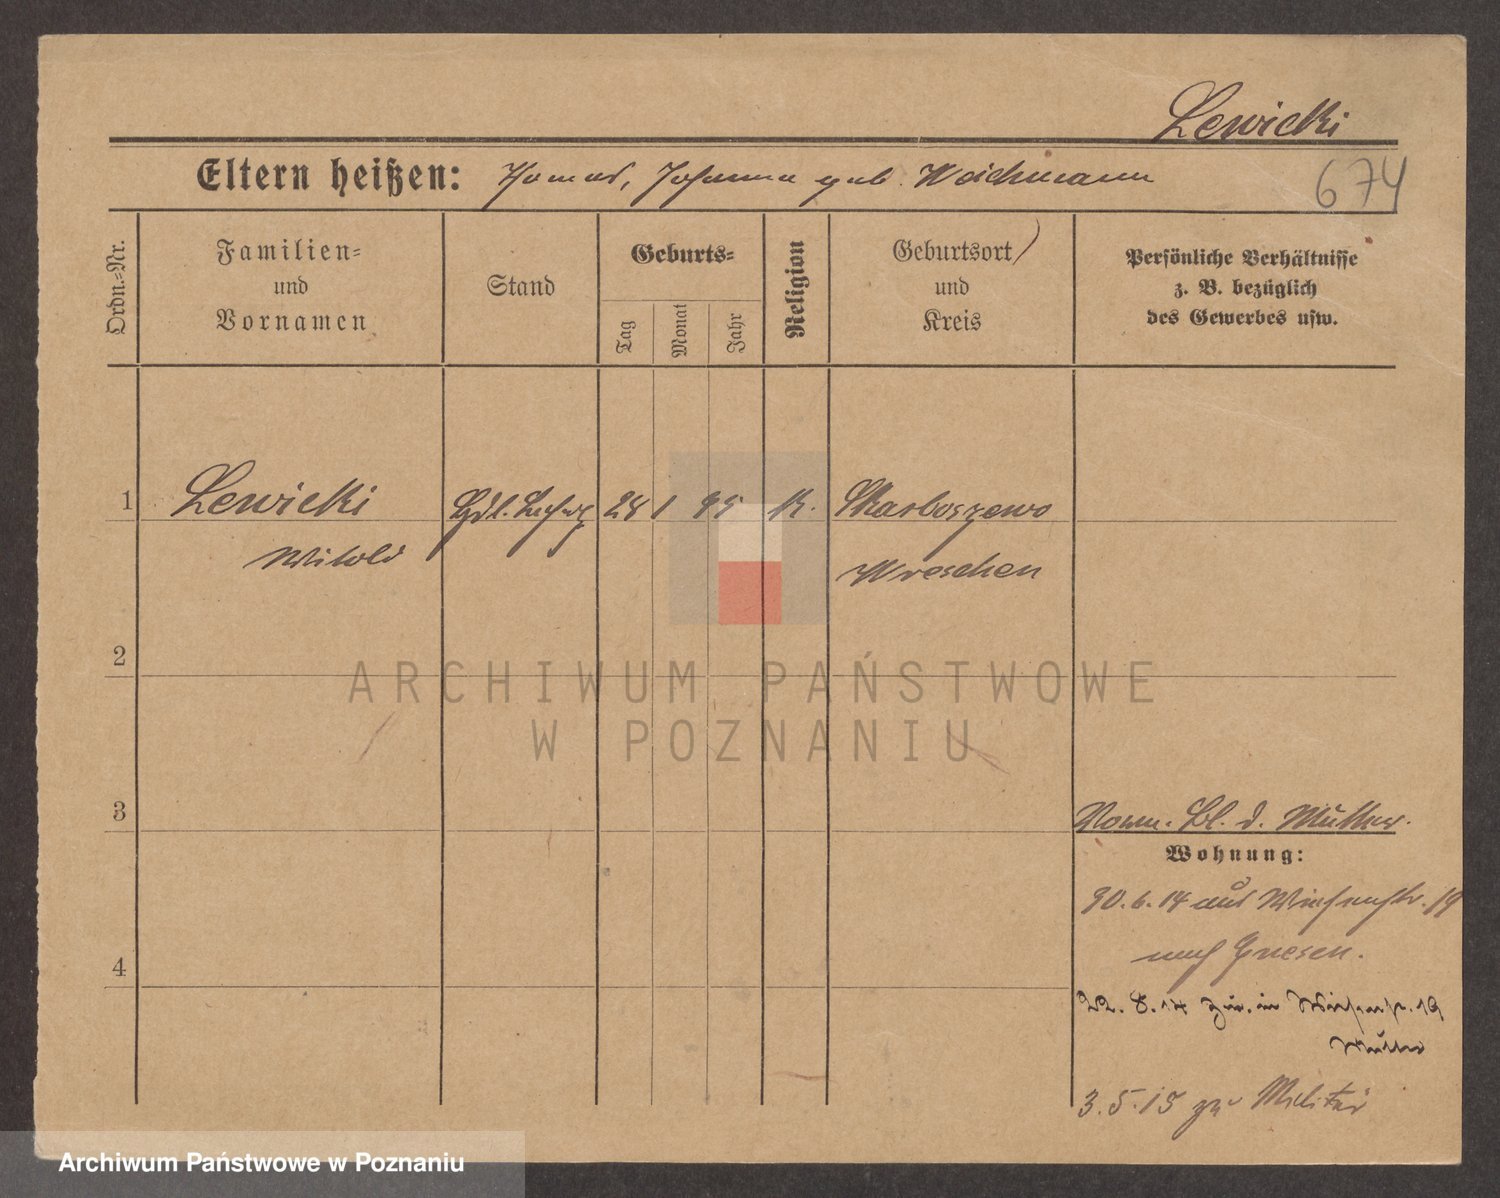 Lewicki
Eltern heißen: Thomas, Johanna geb. Weichmann
674
Ordn.=Nr.
Familien=
und
Vornamen
Stand
Geburts=
Tag
Monat
Jahr
Religion
Geburtsort
und
Kreis
Persönliche Verhältnisse
z. B. bezüglich
des Gewerbes usw.
1
Lewicki
28 1 95 K. Skarboszewo
Witold
Wreschen
2
ARCHIWUM PAŃSTWOWE
W POZNANIU
3
Bl. d. Mutter.
Wohnung:
30.6.14 aus Wiesenstr. 19
nach Gnesen.
4
22.8.14 zur. in Wiesenstr. 19
Mutter
3.5.15 zu Militär
Archiwum Państwowe w Poznaniu